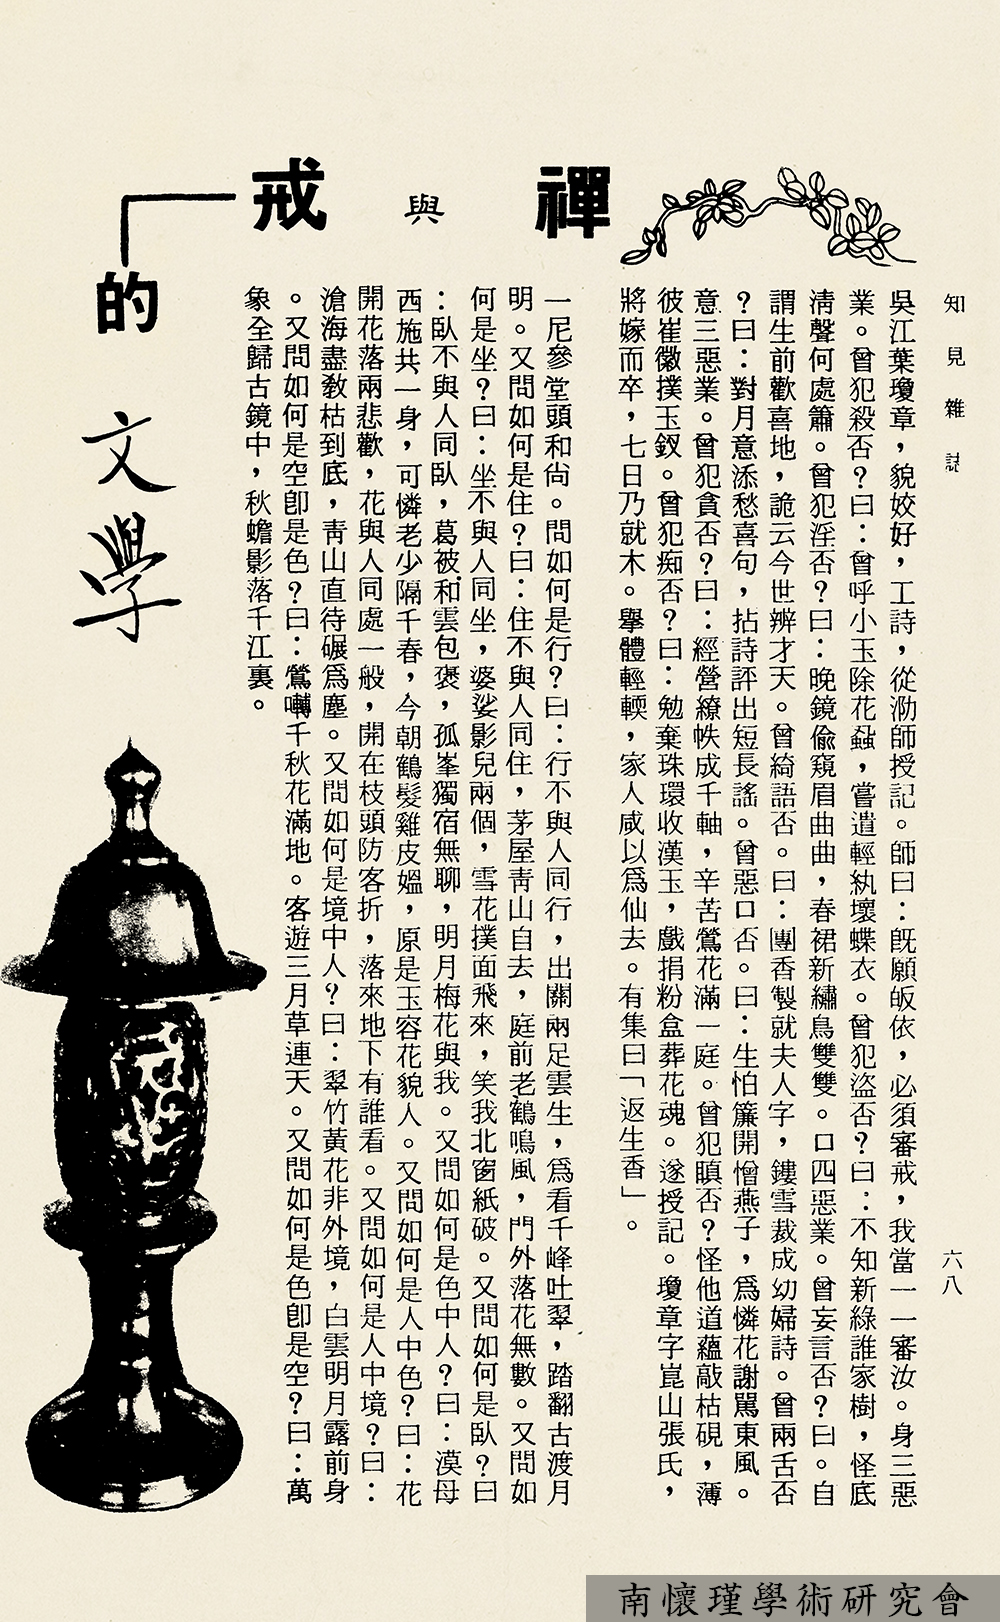 知見雜誌
六八
禪與戒
的文學
吳江葉瓊章，貌姣好，工詩，從泐師授記。師曰：旣願皈依，必須審戒，我當一一審汝。身三惡
業。曾犯殺否？曰：曾呼小玉除花蝨，嘗遣輕紈壞蝶衣。曾犯盜否？曰：不知新綠誰家樹，怪底
淸聲何處簫。曾犯淫否？曰：晚鏡偸窺眉曲曲，春裙新繡鳥雙雙。口四惡業。曾妄言否？曰。自
謂生前歡喜地，詭云今世辨才天。曾綺語否。曰：團香製就夫人字，鏤雪裁成幼婦詩。曾兩舌否
？曰：對月意添愁喜句，拈詩評出短長謠。曾惡口否。曰：生怕簾開憎燕子，爲憐花謝駡東風。
意三惡業。曾犯貪否？曰：經營繚帙成千軸，辛苦鶯花滿一庭。曾犯瞋否？怪他道蘊敲枯硯，薄
彼崔徽撲玉釵。曾犯痴否？曰：勉棄珠環收漢玉，戲捐粉盒葬花魂。遂授記。瓊章字崑山張氏，
將嫁而卒，七日乃就木。舉體輕輭，家人咸以爲仙去。有集曰「返生香」。
一尼參堂頭和尙。問如何是行？曰：行不與人同行，出關兩足雲生，爲看千峰吐翠，踏翻古渡月
明。又問如何是住？曰：住不與人同住，茅屋靑山自去，庭前老鶴鳴風，門外落花無數。又問如
何是坐？曰：坐不與人同坐，婆娑影兒兩個，雪花撲面飛來，笑我北窗紙破。又問如何是臥？曰
：臥不與人同臥，葛被和雲包褒，孤峯獨宿無聊，明月梅花與我。又問如何是色中人？曰：漠母
西施共一身，可憐老少隔千春，今朝鶴髮雞皮媼，原是玉容花貌人。又問如何是人中色？曰：花
開花落兩悲歡，花與人同處一般，開在枝頭防客折，落來地下有誰看。又問如何是人中境？曰：
滄海盡敎枯到底，靑山直待碾爲塵。又問如何是境中人？曰：翠竹黃花非外境，白雲明月露前身
。又問如何是空卽是色？曰：鶯囀千秋花滿地。客遊三月草連天。又問如何是色卽是空？曰：萬
象全歸古鏡中，秋蟾影落千江裏。
南懷瑾學術研究會